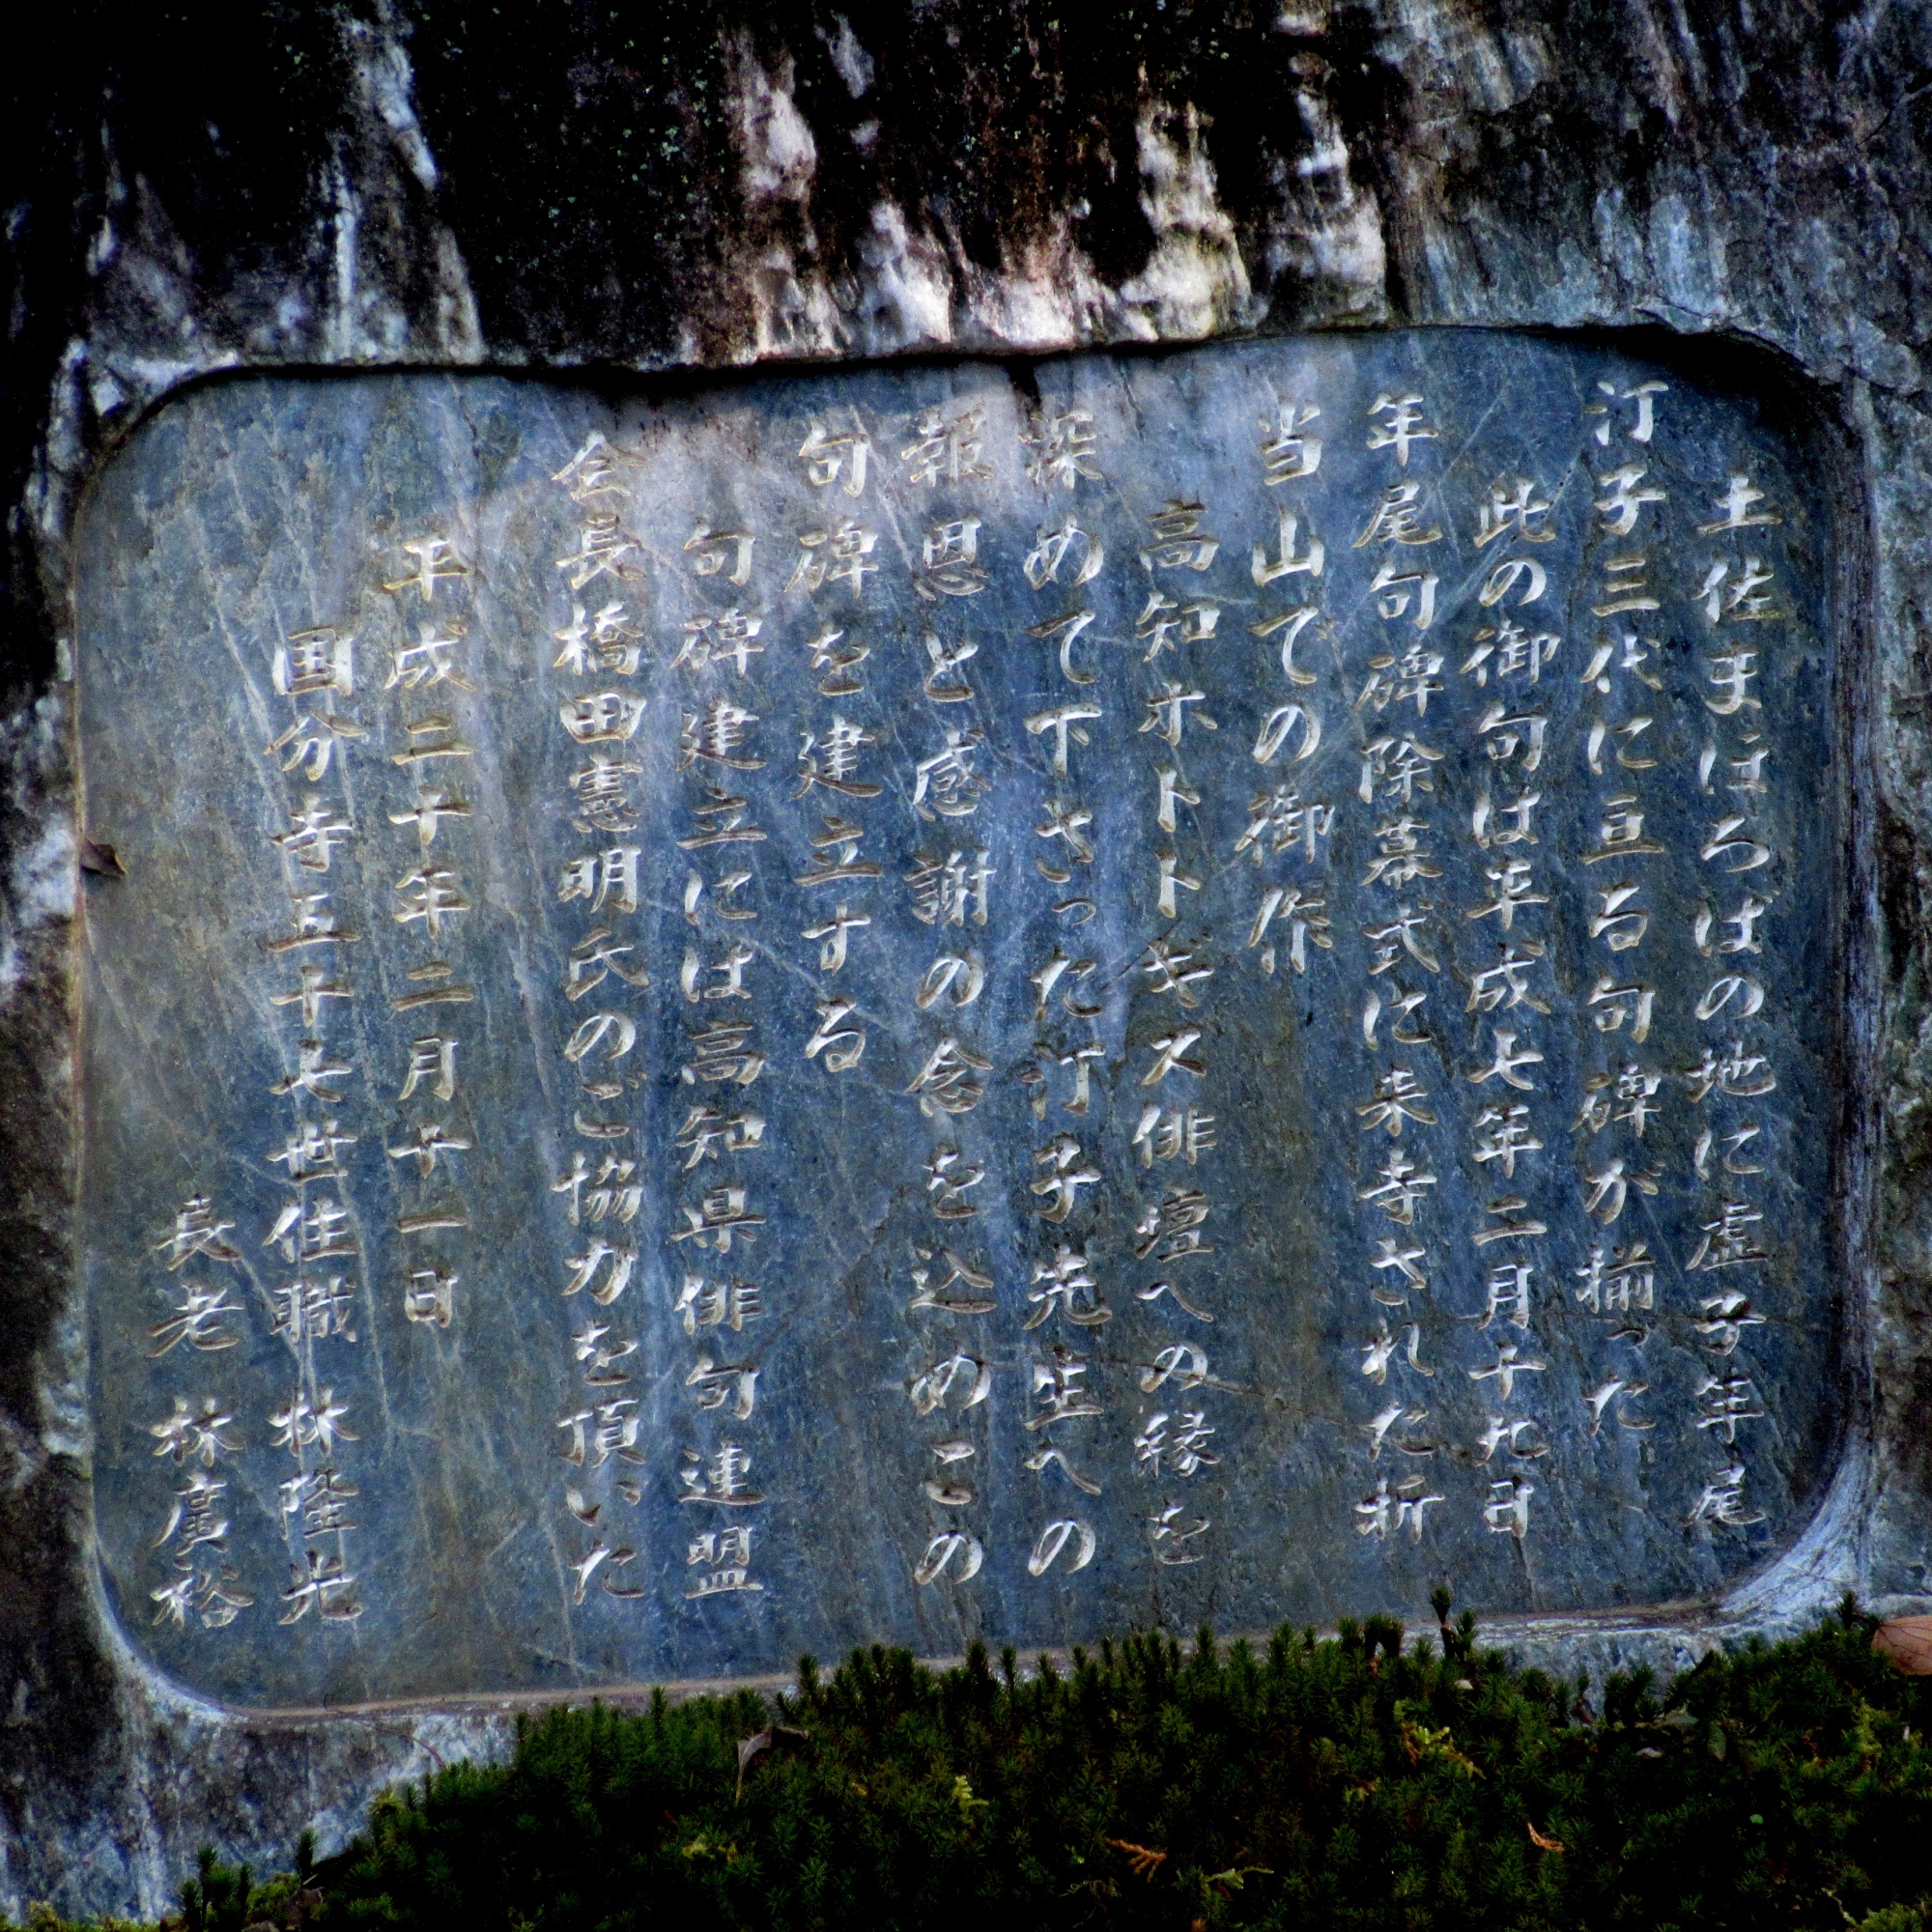 土佐まほろばの地に虚子年尾
汀子三代に亘る句碑が揃った
此の御句は平成七年二月十九日
年尾句碑除幕式に来寺された折
当山での御作
高知ホトトギス俳壇への縁を
深めて下さった汀子先生への
報恩と感謝の念を込めこの
句碑を建立する
句碑建立には高知県俳句連盟
会長橋田憲明氏のご協力を頂いた
平成二十年二月十一日
国分寺五十七世住職 林隆光
長老 林廣裕